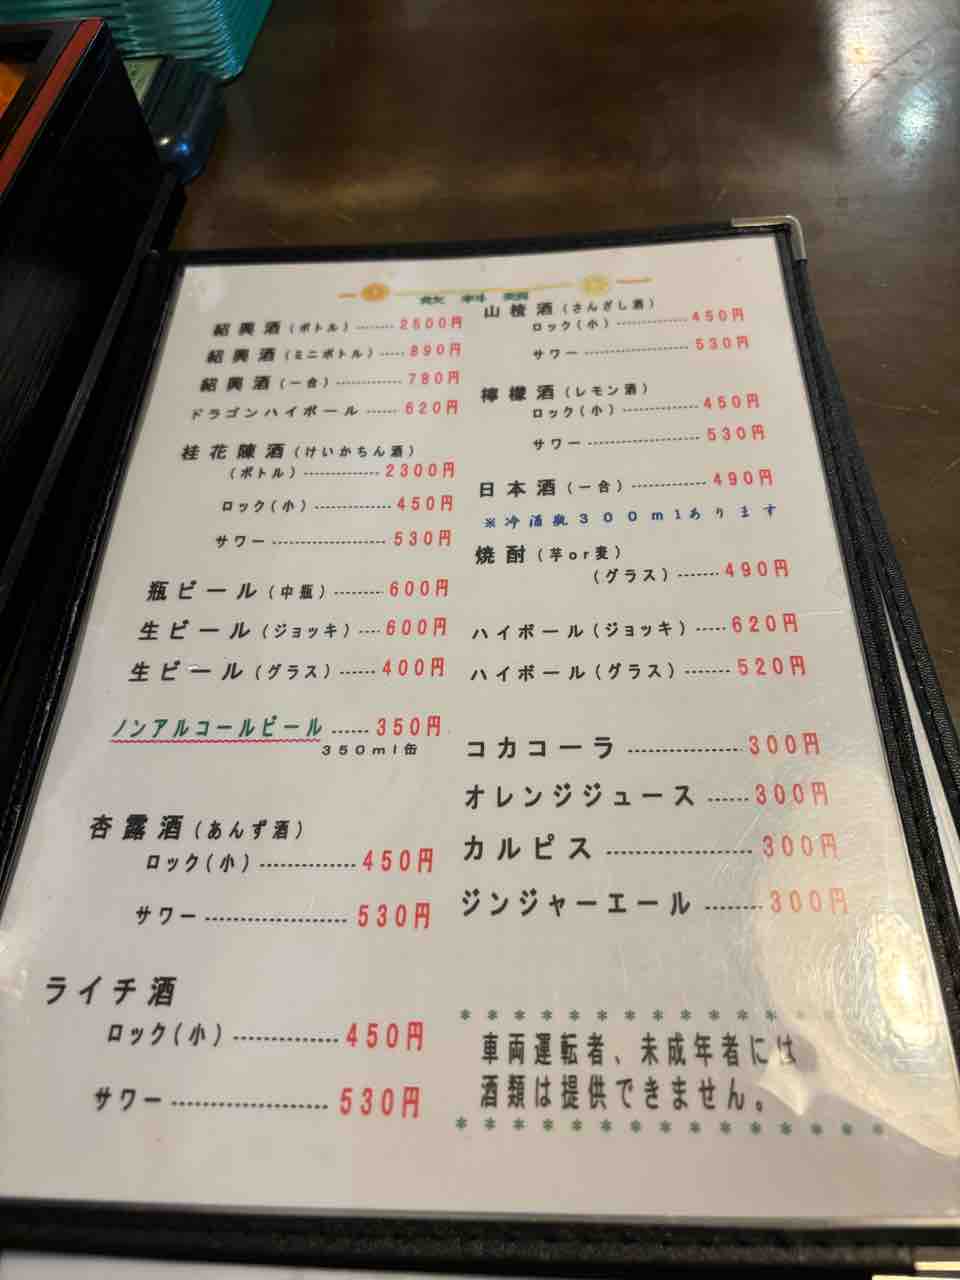 飲料類
紹興酒(ボトル)........2500円
紹興酒(ミニボトル).....890円
紹興酒(一合).............780円
ドラゴンハイボール......620円
桂花陳酒(けいかちん酒)
(ボトル)..............2300円
ロック(小)...............450円
サワー......................530円
瓶ビール(中瓶)........600円
生ビール(ジョッキ)....600円
生ビール(グラス)......400円
ノンアルコールビール......350円
350ml缶
杏露酒(あんず酒)
ロック(小)..............450円
サワー.....................530円
ライチ酒
ロック(小)..............450円
サワー.....................530円
山楂酒(さんざし酒)
ロック(小)..............450円
サワー.....................530円
檸檬酒(レモン酒)
ロック(小)..............450円
サワー.....................530円
日本酒(一合)............490円
※冷酒瓶300mlあります
焼酎(芋or麦)
(グラス).......490円
ハイボール(ジョッキ).....620円
ハイボール(グラス).......520円
コカコーラ.................300円
オレンジジュース......300円
カルピス.....................300円
ジンジャーエール........300円
車両運転者、未成年者には
酒類は提供できません。